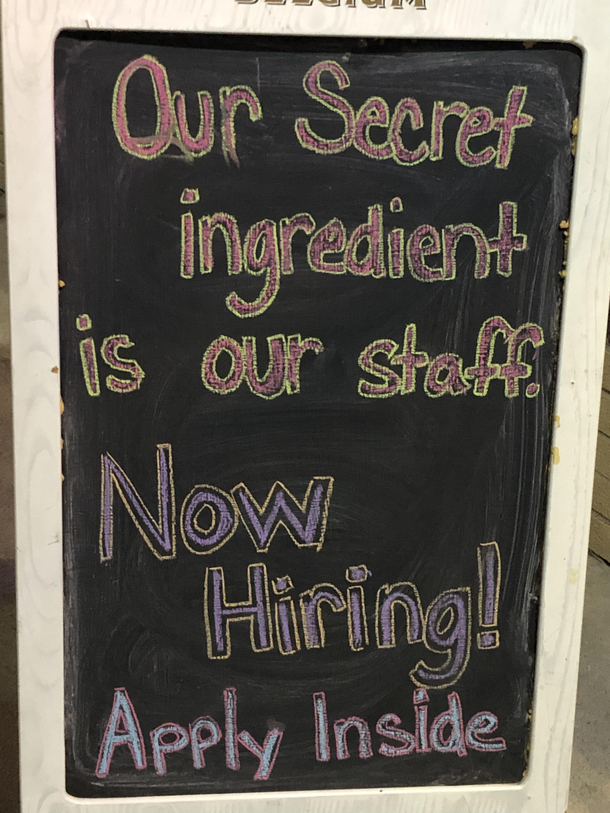 BELGIUM
Our Secret
ingredient
is our staff.
Now
Hiring!
Apply Inside